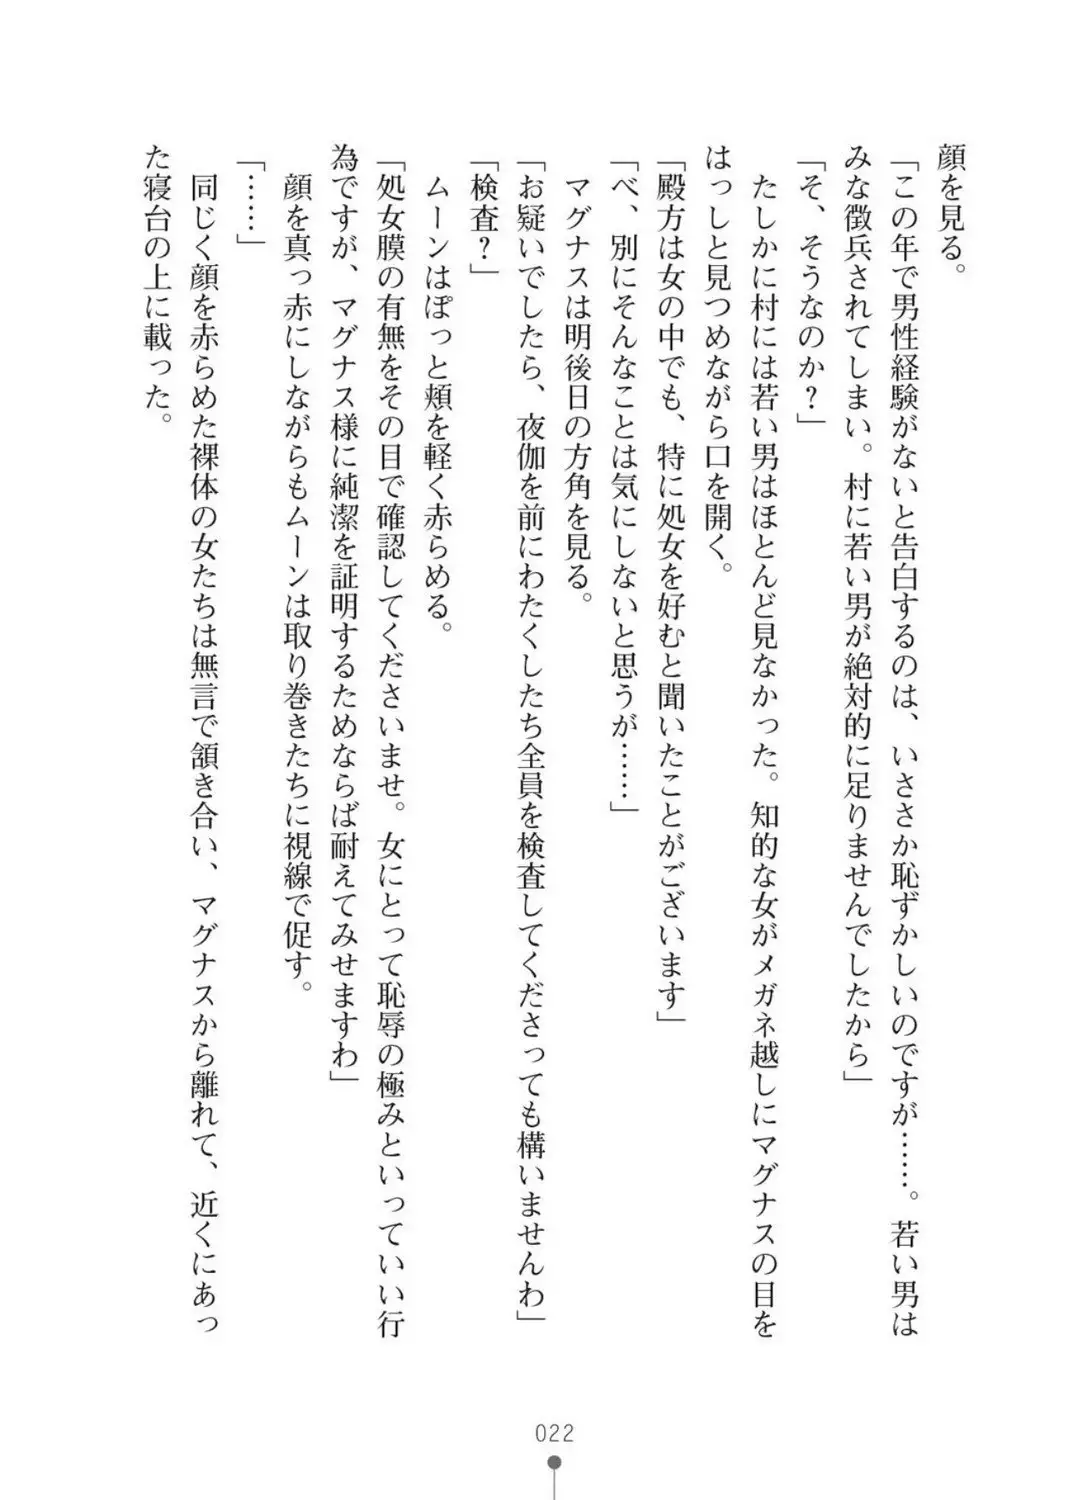 顔を見る。
「この年で男性経験がないと告白するのは、いささか恥ずかしいのですが……。若い男は
みな徴兵されてしまい。村に若い男が絶対的に足りませんでしたから」
「そ、そうなのか？」
たしかに村には若い男はほとんど見なかった。知的な女がメガネ越しにマグナスの目を
はっしと見つめながら口を開く。
「殿方は女の中でも、特に処女を好むと聞いたことがございます」
「べ、別にそんなことは気にしないと思うが……」
マグナスは明後日の方角を見る。
「お疑いでしたら、夜伽を前にわたくしたち全員を検査してくださっても構いませんわ」
「検査？」
ムーンはぽっと頬を軽く赤らめる。
「処女膜の有無をその目で確認してくださいませ。女にとって恥辱の極みといっていい行
為ですが、マグナス様に純潔を証明するためならば耐えてみせますわ」
顔を真っ赤にしながらもムーンは取り巻きたちに視線で促す。
「……」
同じく顔を赤らめた裸体の女たちは無言で頷き合い、マグナスから離れて、近くにあっ
た寝台の上に載った。
022